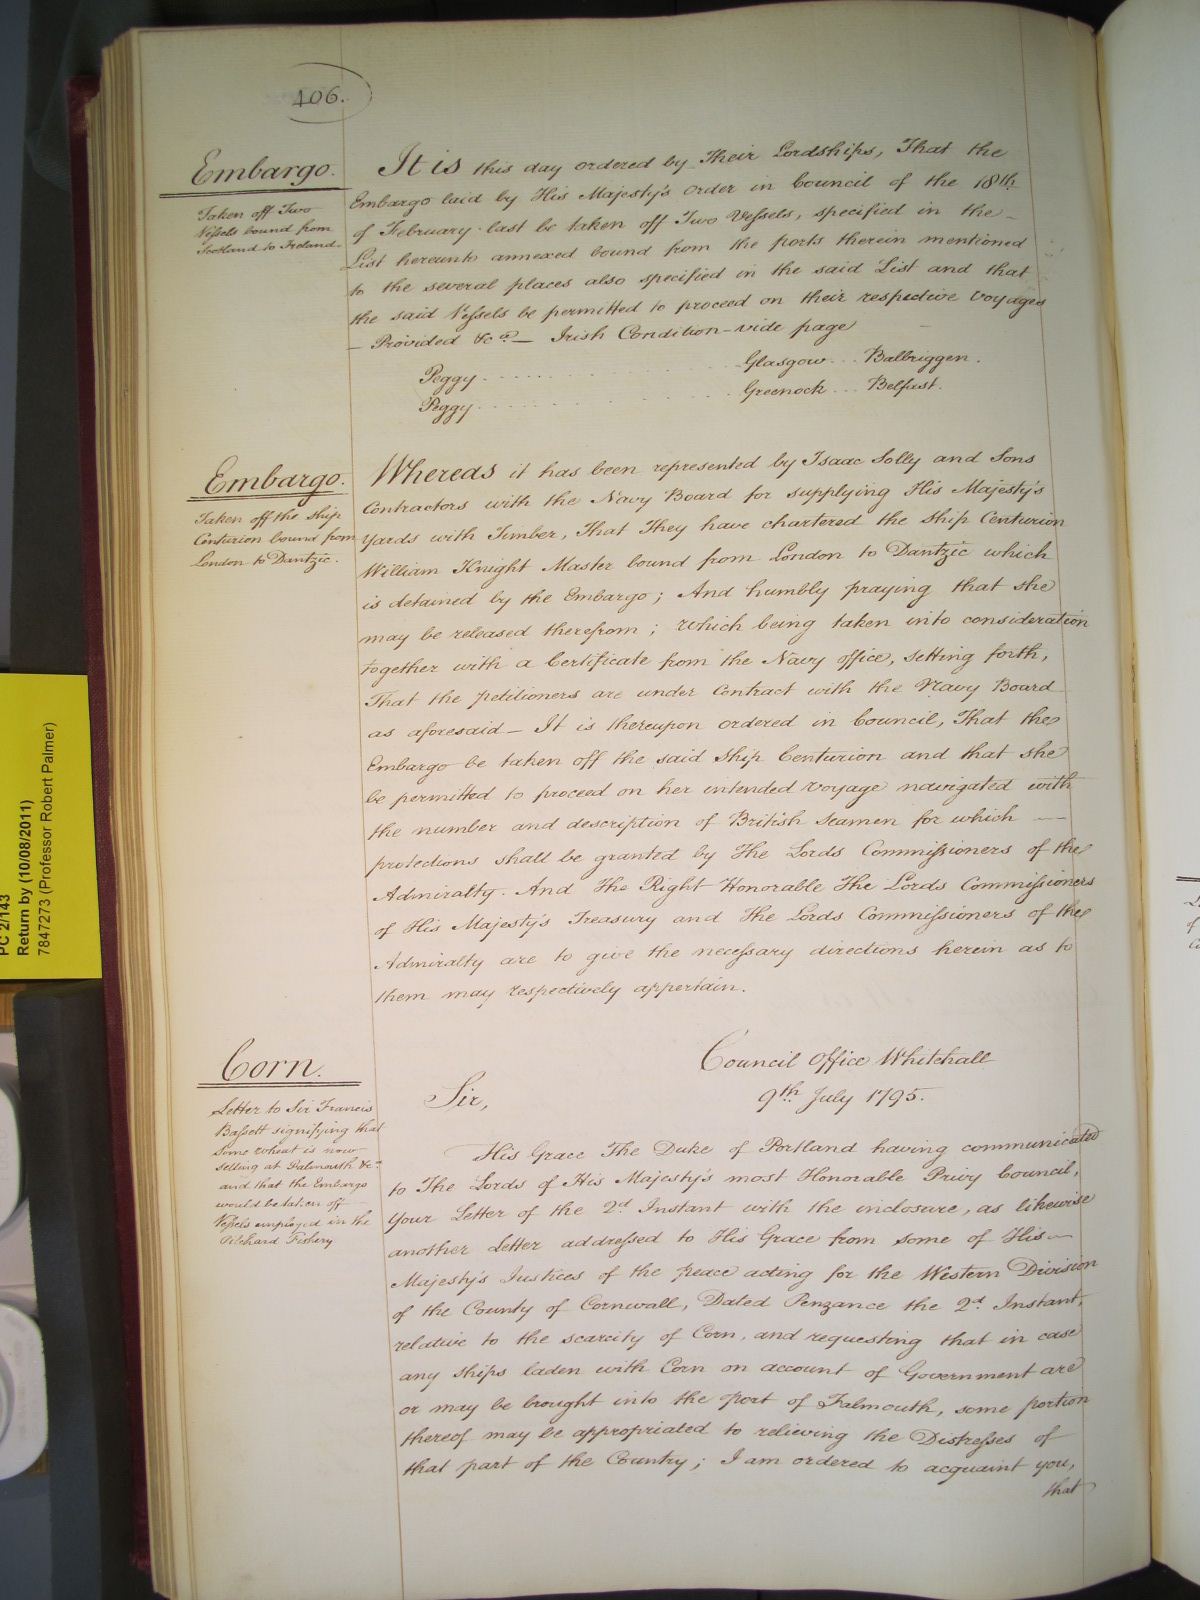 406.
Embargo.
Taken off Two
Vessels bound from
Scotland to Ireland.
It is this day ordered by Their Lordships, That the
Embargo laid by His Majesty's order in Council of the 18th
of February last be taken off Two Vessels, specified in the
List hereunto annexed bound from the ports therein mentioned
to the several places also specified in the said List and that
the said Vessels be permitted to proceed on their respective Voyages
— Provided &ca — Irish Condition - vide page
Peggy . . . . . . . . . . Glasgow . . . Balbriggen.
Peggy . . . . . . . . . . Greenock . . . Belfast.
Embargo.
Taken off the ship
Centurion bound from
London to Dantzic.
Whereas it has been represented by Isaac Solly and Sons
Contractors with the Navy Board for supplying His Majesty's
Yards with Timber, That They have chartered the ship Centurion
William Knight Master bound from London to Dantzic which
is detained by the Embargo; And humbly praying that she
may be released therefrom; which being taken into consideration
together with a Certificate from the Navy office, setting forth,
That the petitioners are under Contract with the Navy Board
as aforesaid — It is thereupon ordered in Council, That the
Embargo be taken off the said ship Centurion and that she
be permitted to proceed on her intended Voyage navigated with
the number and description of British Seamen for which —
protections shall be granted by The Lords Commissioners of the
Admiralty. And The Right Honorable The Lords Commissioners
of His Majesty's Treasury and The Lords Commissioners of the
Admiralty are to give the necessary directions herein as to
them may respectively appertain.
Corn.
Letter to Sir Francis
Bassett signifying that
some wheat is now
selling at Falmouth &ca
and that the Embargo
would be taken off
Vessels employed in the
Pilchard Fishery
Council Office Whitehall
Sir, 9th July 1795.
His Grace The Duke of Portland having communicated
to The Lords of His Majesty's most Honorable Privy Council,
Your Letter of the 2d Instant with the inclosure, as likewise
another Letter addressed to His Grace from some of His
Majesty's Justices of the peace acting for the Western Division
of the County of Cornwall, Dated Penzance the 2d Instant,
relative to the scarcity of Corn, and requesting that in case
any ships laden with Corn on account of Government are
or may be brought into the port of Falmouth, some portion
thereof may be appropriated to relieving the Distresses of
that part of the Country; I am ordered to acquaint you,
that
PC 2/143
Return by (10/08/2011)
7847273 (Professor Robert Palmer)